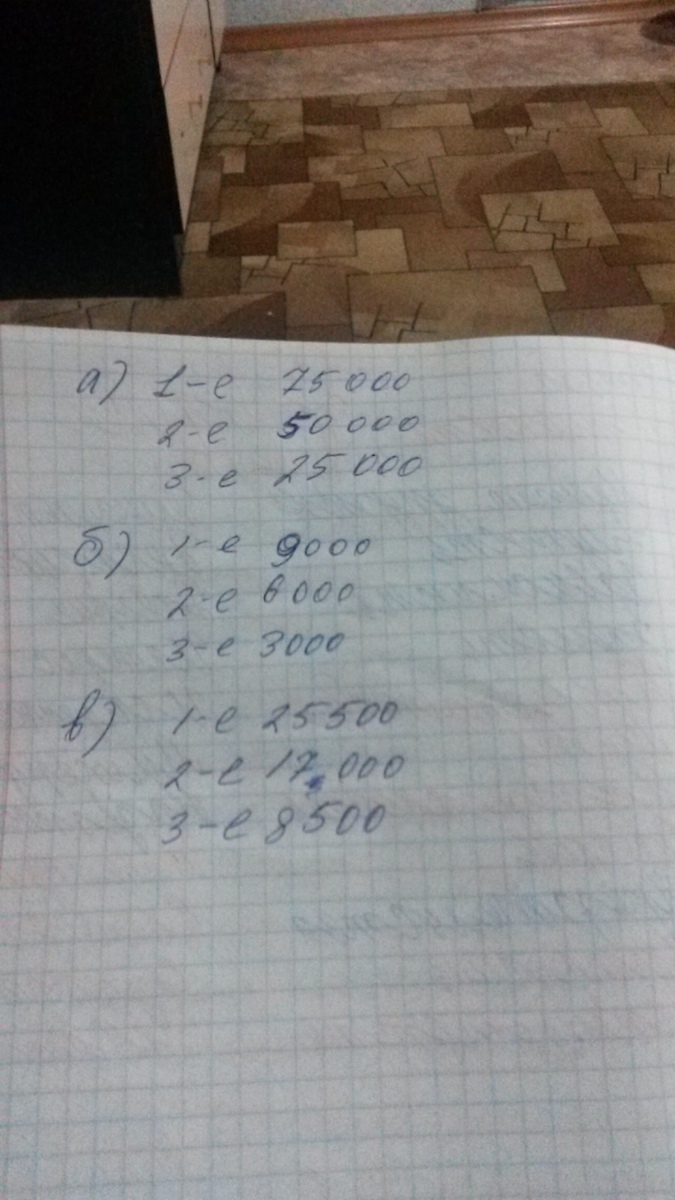 а) 1-е 75000
2-е 50000
3-е 25000
б) 1-е 9000
2-е 6000
3-е 3000
в) 1-е 25500
2-е 17000
3-е 8500